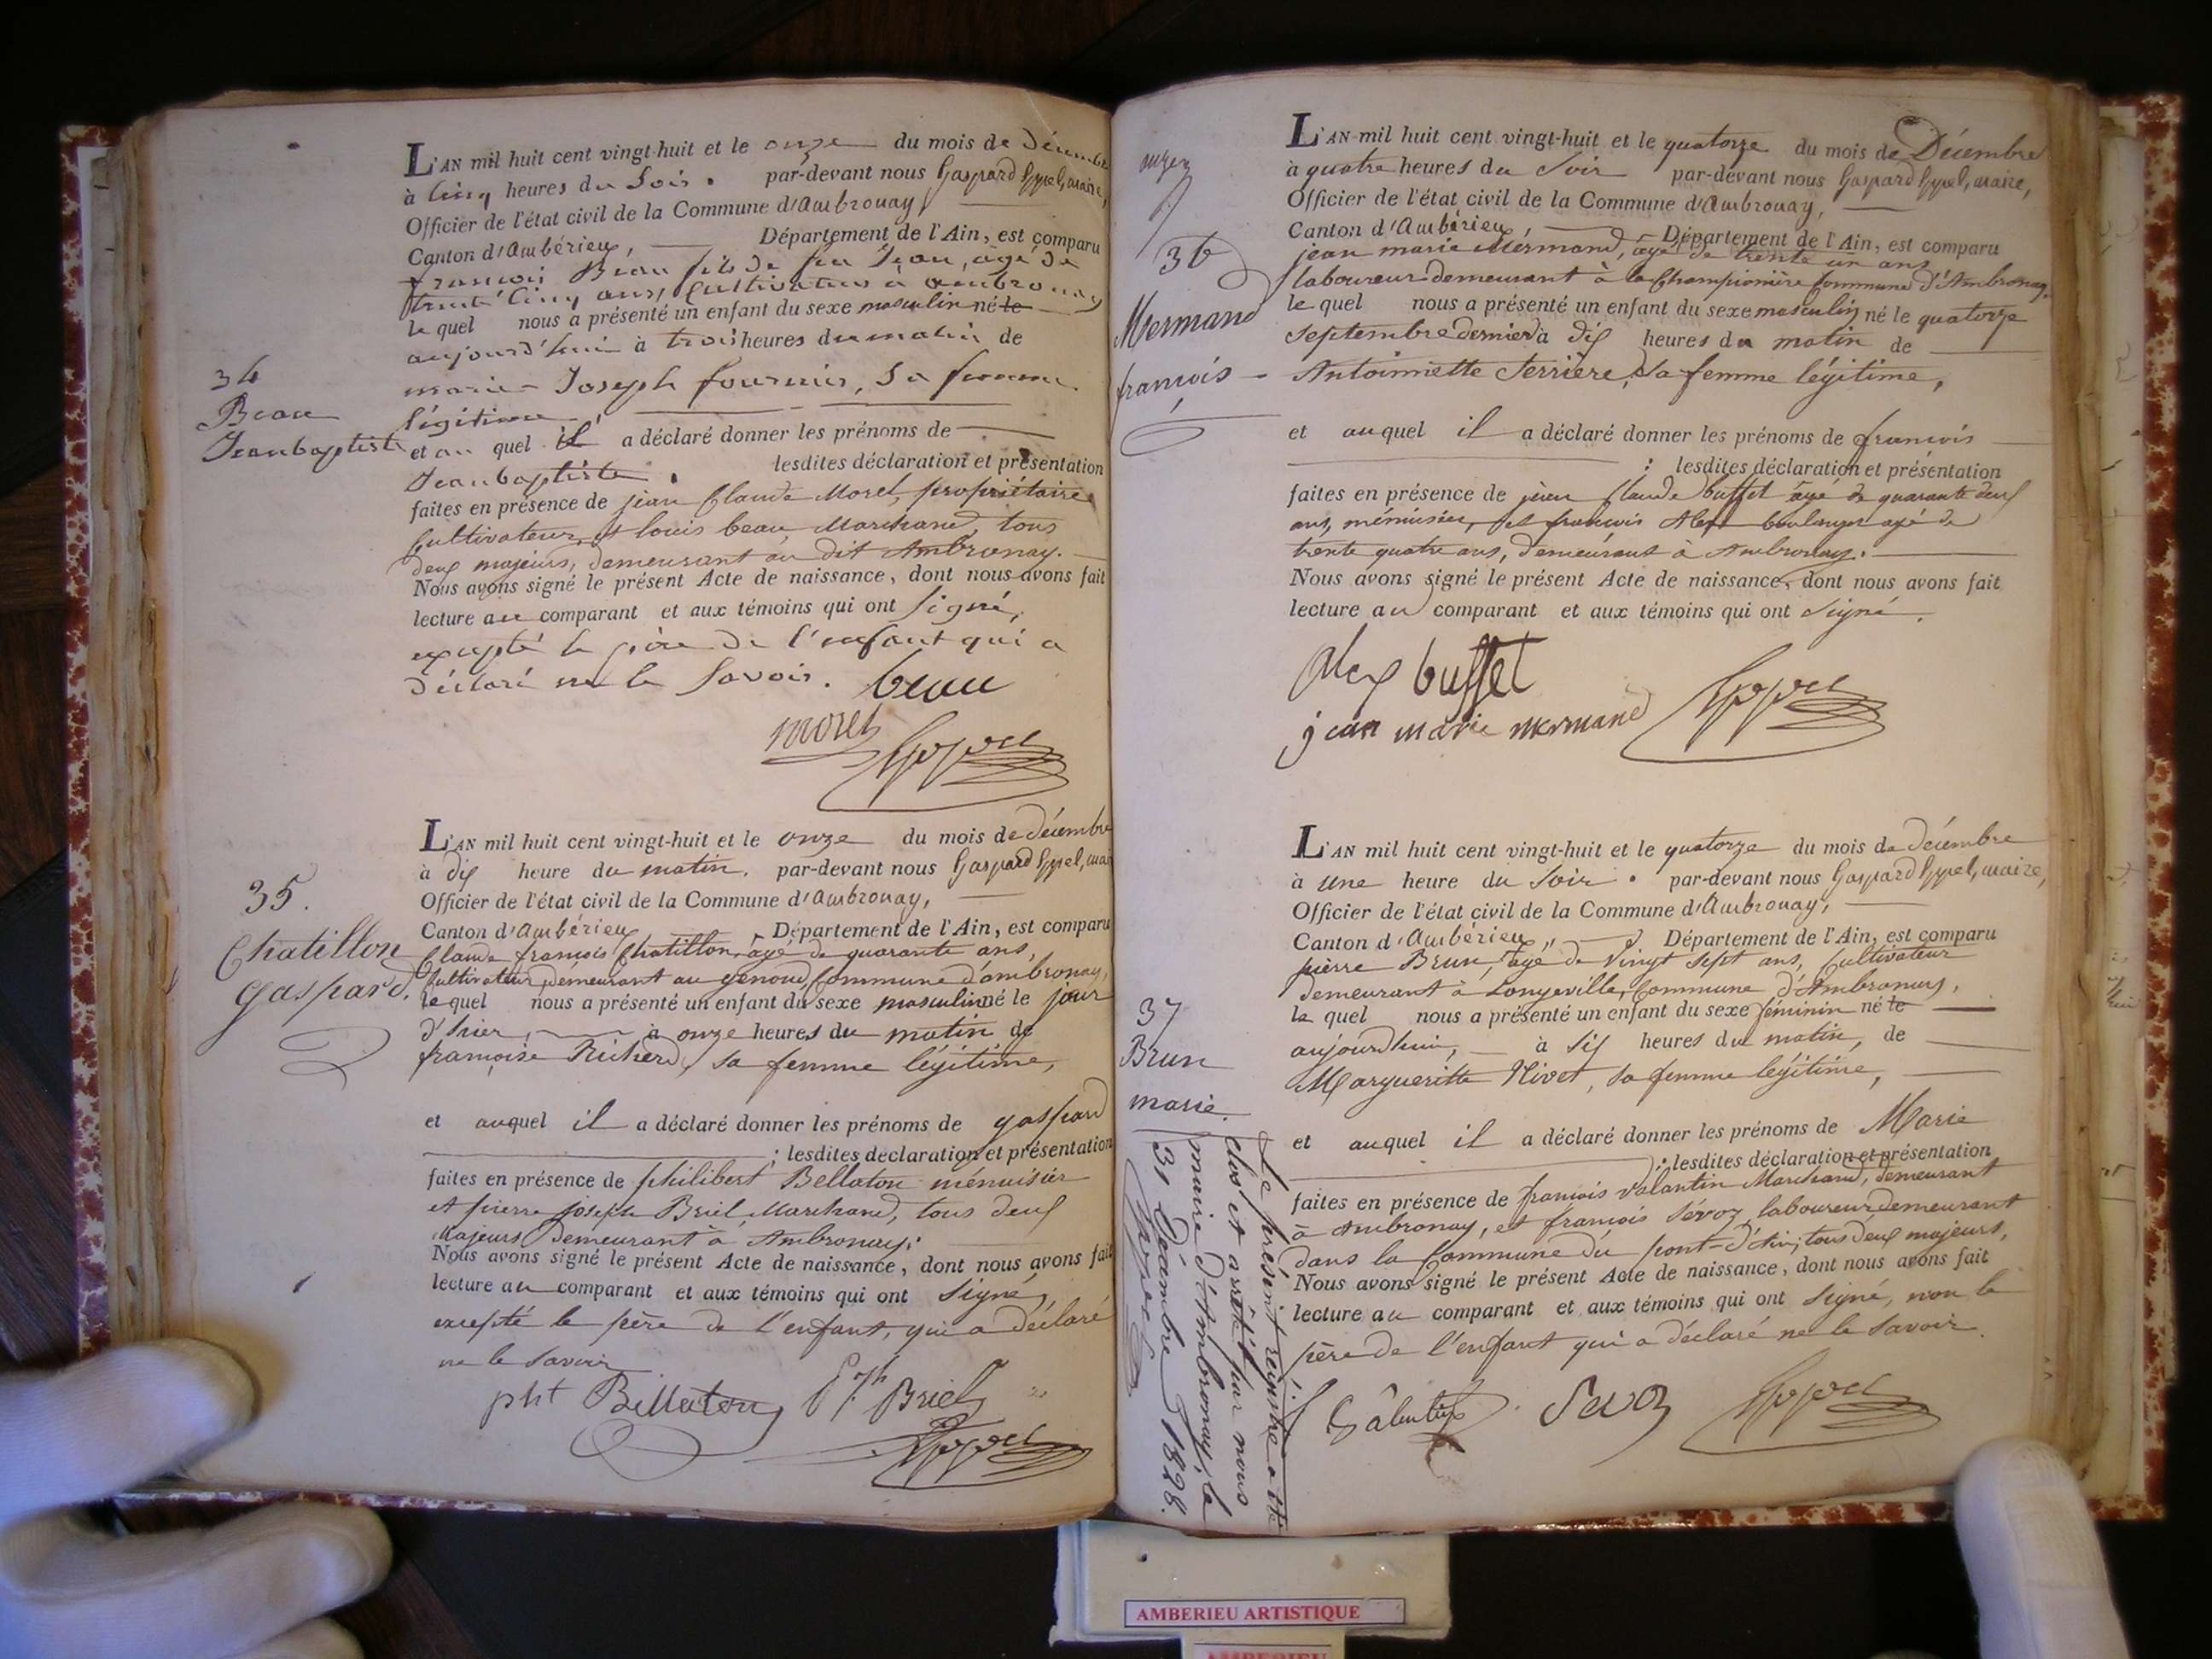 34
Beau
Jeanbaptiste
L'AN mil huit cent vingt-huit et le onze du mois de décembre
à cinq heures du soir. par-devant nous Gaspard Eypel, maire,
Officier de l'état civil de la Commune d'Ambronay,
Canton d'Ambérieu, Département de l'Ain, est comparu
francois Beau fils de feu Jean, agé de
trente cinq ans, cultivateur à ambronay
lequel nous a présenté un enfant du sexe masculin né le
aujourd'hui à trois heures du matin de
marie-Joseph fournier, sa femme
légitime,
et au quel il a déclaré donner les prénoms de
Jeanbaptiste. lesdites déclaration et présentation
faites en présence de jean Claude Morel, propriétaire
cultivateur, et louis beau, Marchand, tous
deux majeurs, demeurant au dit Ambronay.
Nous avons signé le présent Acte de naissance, dont nous avons fait
lecture au comparant et aux témoins qui ont signé,
excepté le père de l'enfant qui a
déclaré ne le savoir. beau
morel
35.
Chatillon
gaspard.
L'AN mil huit cent vingt-huit et le onze du mois de décembre
à dix heure du matin. par-devant nous Gaspard Eypel, mai
Officier de l'état civil de la Commune d'Ambronay,
Canton d'Ambérieu, Département de l'Ain, est comparu
Claude françois Chatillon, agé de quarante ans,
Cultivateur, demeurant au genoud, Commune d'ambronay,
lequel nous a présenté un enfant du sexe masculin né le jour
d'hier, à onze heures du matin de
françoise Richerd, sa femme légitime,
et auquel il a déclaré donner les prénoms de gaspard
; lesdites déclaration et présentation
faites en présence de philibert Bellaton ménuisier
et pierre joseph Briel, Marchand, tous deux
Majeurs demeurant à Ambronay;
Nous avons signé le présent Acte de naissance, dont nous avons fait
lecture au comparant et aux témoins qui ont signé,
excepté le père de l'enfant, qui a déclaré
ne le savoir
pht Billaton Pr Jph Briel
36
Mermand
françois
L'AN mil huit cent vingt-huit et le quatorze du mois de Décembre
à quatre heures du soir par-devant nous Gaspard Eypel, maire,
Officier de l'état civil de la Commune d'Ambronay,
Canton d'Ambérieu, Département de l'Ain, est comparu
jean marie Mermand, agé de trente un ans
laboureur demeurant à la Championière Commune d'Ambronay,
lequel nous a présenté un enfant du sexe masculin né le quatorze
septembre dernier à dix heures du matin de
Antoinette Terrière, sa femme légitime,
et auquel il a déclaré donner les prénoms de françois
: lesdites déclaration et présentation
faites en présence de jean Claude buffet agé de quarante deux
ans, ménuisier, et françois Alex boulanger agé de
trente quatre ans, demeurant à Ambronay.
Nous avons signé le présent Acte de naissance, dont nous avons fait
lecture au comparant et aux témoins qui ont signé.
Alex buffet
jean marie mermand
37
Brun
marie.
L'AN mil huit cent vingt-huit et le quatorze du mois de décembre
à une heure du soir. par-devant nous Gaspard Eypel, maire,
Officier de l'état civil de la Commune d'Ambronay,
Canton d'Ambérieu, Département de l'Ain, est comparu
pierre Brun, agé de vingt sept ans, Cultivateur
demeurant à Longeville, Commune d'Ambronay,
lequel nous a présenté un enfant du sexe féminin né le
aujourdhui, à six heures du matin, de
Margueritte Nivet, sa femme légitime,
et auquel il a déclaré donner les prénoms de Marie
; lesdites déclaration et présentation
faites en présence de françois Valantin Marchand, demeurant
à Ambronay, et françois Sévoz laboureur demeurant
dans la Commune du pont-d'Ain, tous deux majeurs,
Nous avons signé le présent Acte de naissance, dont nous avons fait
lecture au comparant et aux témoins qui ont signé, non le
père de l'enfant qui a déclaré ne le savoir.
Sevoz
Le présent régistre a été
clos et arrêté par nous
maire d'Ambronay, le
31 Décembre 1828.
AMBERIEU ARTISTIQUE
AMBERIEU